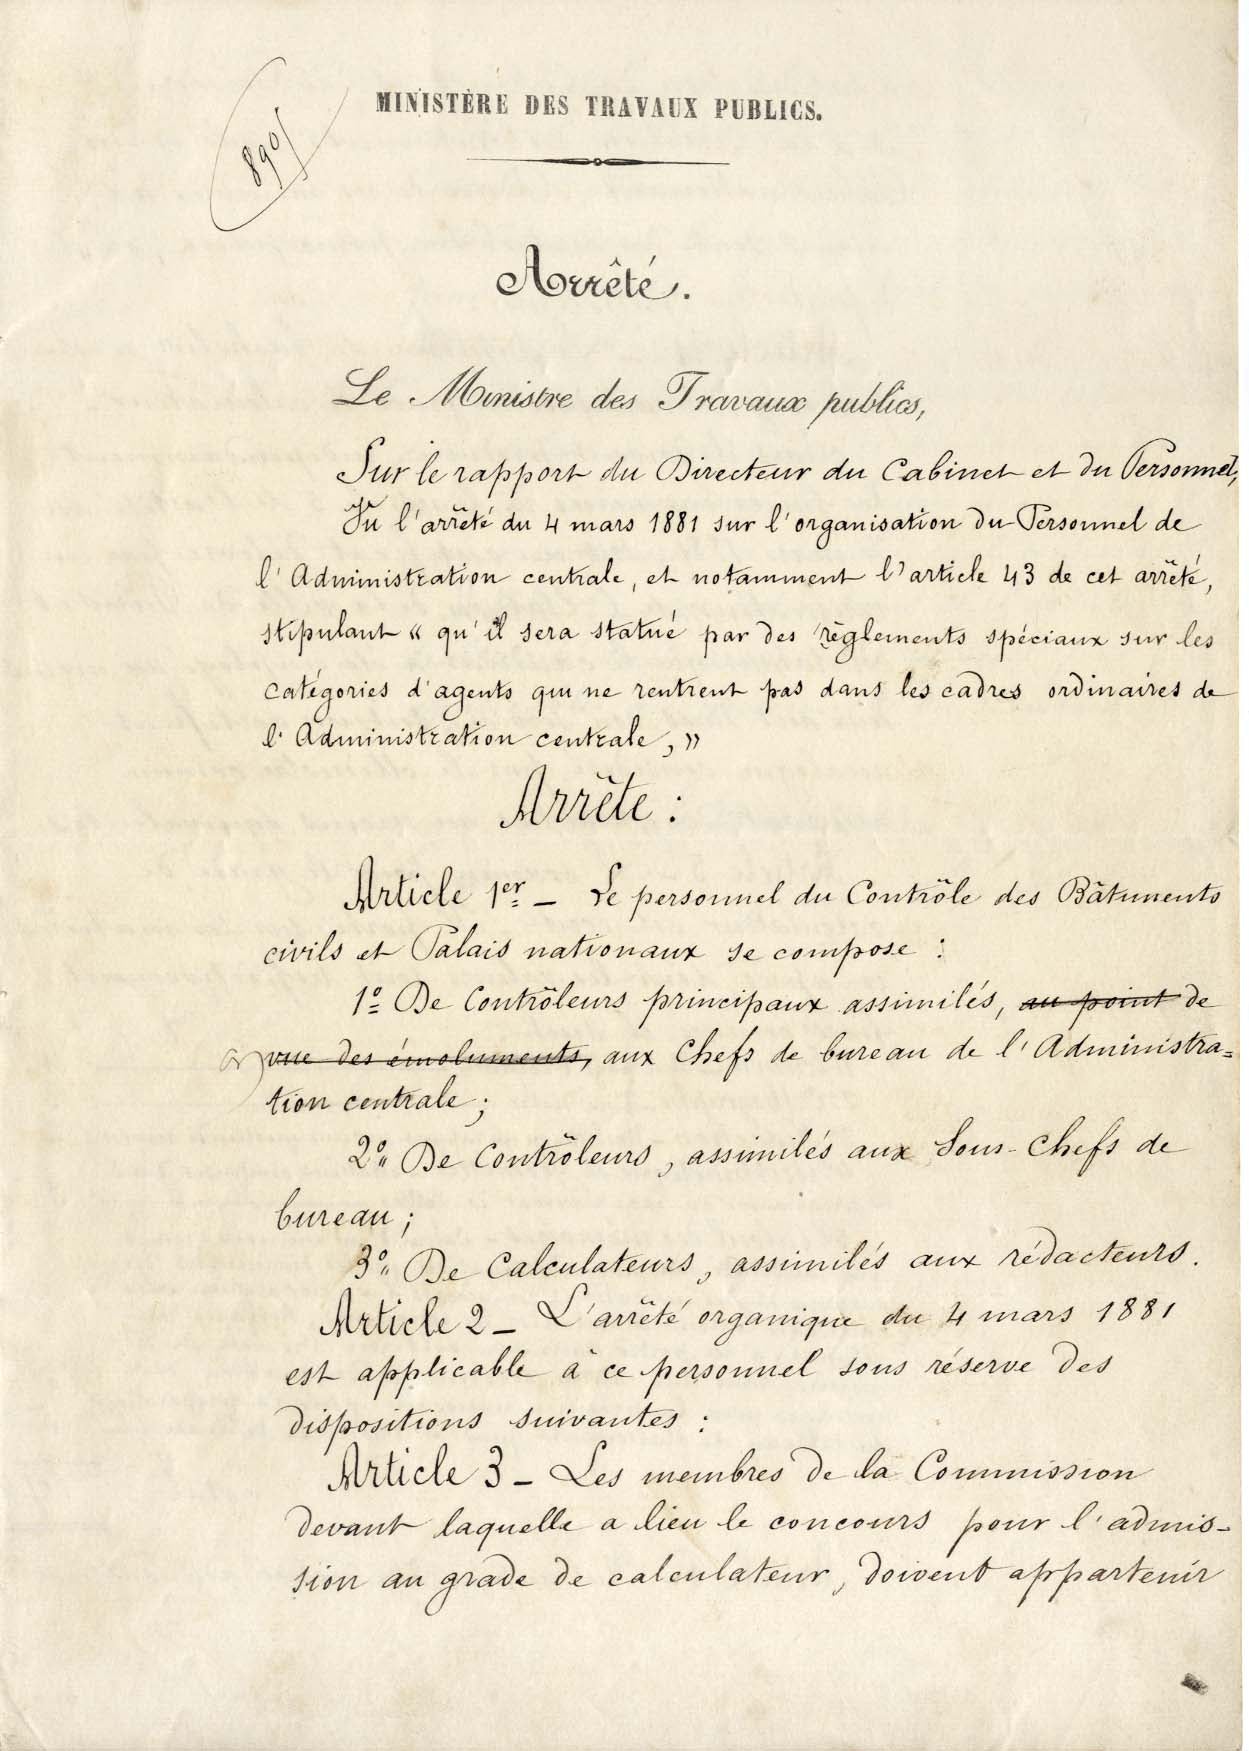 MINISTÈRE DES TRAVAUX PUBLICS.
890
Arrêté.
Le Ministre des Travaux publics,
Sur le rapport du Directeur du Cabinet et du Personnel,
Vu l'arrêté du 4 mars 1881 sur l'organisation du Personnel de
l'Administration centrale, et notamment l'article 43 de cet arrêté,
stipulant « qu'il sera statué par des règlements spéciaux sur les
catégories d'agents qui ne rentrent pas dans les cadres ordinaires de
l'Administration centrale, »
Arrête :
Article 1er – Le personnel du Contrôle des Bâtiments
civils et Palais nationaux se compose :
1º De Contrôleurs principaux assimilés, au point de
vue des émoluments, aux Chefs de bureau de l'Administra=
tion centrale ;
2º De Contrôleurs, assimilés aux Sous-Chefs de
bureau ;
3º De Calculateurs, assimilés aux rédacteurs.
Article 2 – L'arrêté organique du 4 mars 1881
est applicable à ce personnel sous réserve des
dispositions suivantes :
Article 3 – Les membres de la Commission
devant laquelle a lieu le concours pour l'admis-
sion au grade de calculateur, doivent appartenir